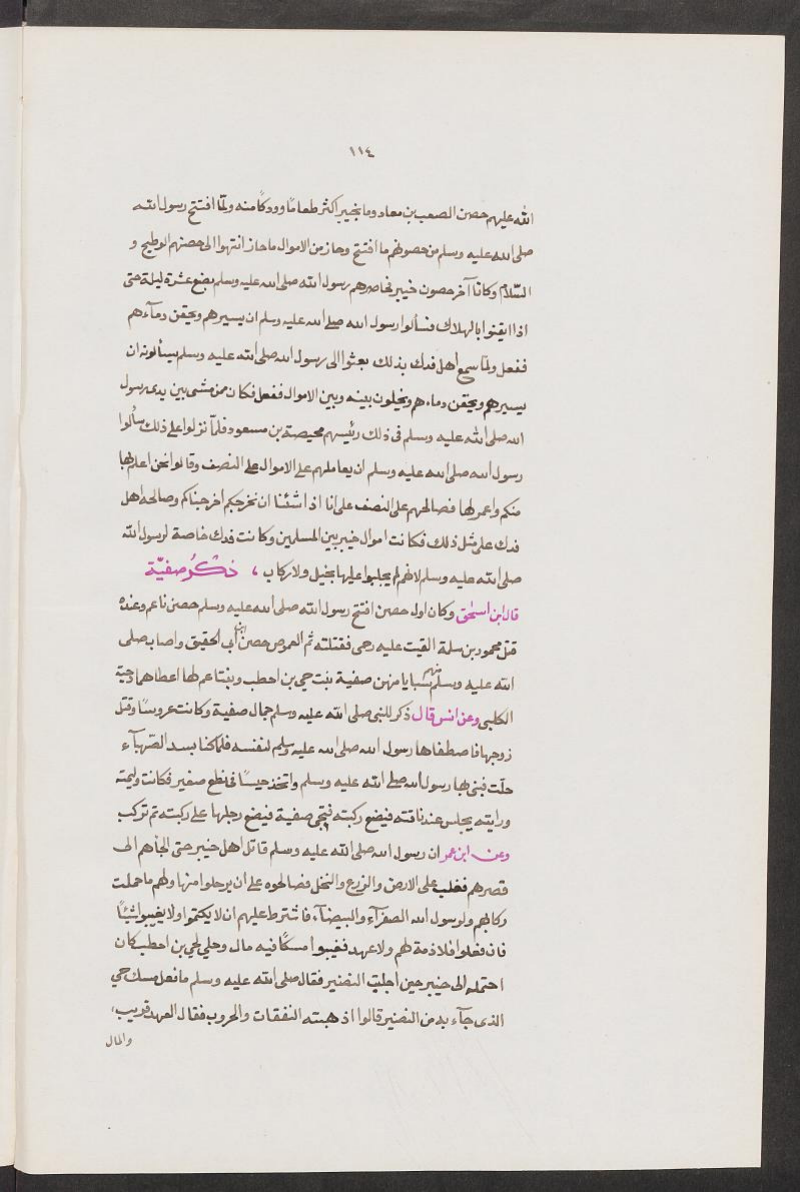 ١١٤
الله عليهم حصن الصعب بن معاد وما بخيبر اكثر طعامًا وودكًا منه ولمّا افتتح رسول الله
صلى الله عليه وسلم من حصونهم ما افتتح وحاز من الاموال ما حاز انتهوا الى حصنهم الوطيح و
السّلام وكانا آخر حصون خيبر فحاصرهم رسول الله صلى الله عليه وسلم بضع عشرة ليلة حتى
اذا ايقنوا بالهلاك فسألوا رسول الله صلى الله عليه وسلم ان يسيرهم ويحقن دمآءهم
ففعل ولمّا سمع أهل فدك بذلك بعثوا الى رسول الله صلى الله عليه وسلم يسألونه ان
يسيرهم ويحقن دماءهم ويخلون بينه وبين الاموال ففعل فكان ممن مشى بين يدى رسول
الله صلى الله عليه وسلم فى ذلك رئيسهم محيصة بن مسعود فلمّا نزلوا على ذلك سألوا
رسول الله صلى الله عليه وسلم ان يعاملهم على الاموال على النصف وقالوا نحن اعلم بها
منكم واعمر لها فصالحهم على النصف على انا اذا شئنا ان نخرجكم اخرجناكم وصالحه اهل
فدك على مثل ذلك فكانت اموال خيبر بين المسلمين وكانت فدك خاصة لرسول الله
صلى الله عليه وسلم لانهم لم يجلبوا عليها بخيل ولا ركاب ، ذكر صفيّة
قال ابن اسحٰق وكان اول حصن افتتح رسول الله صلى الله عليه وسلم حصن ناعم وعنده
قتل محمود بن سلمة القيت عليه رحى فقتلته ثم العموص حصن ابن أبى الحقيق واصاب صلى
الله عليه وسلم منهم سبايا منهن صفية بنت حيي بن احطب وبنتا عم لها اعطاهما دحية
الكلبى وعن انس قال ذكر للنبى صلى الله عليه وسلم جمال صفية وكانت عروسًا وقتل
زوجها فاصطفاها رسول الله صلى الله عليه وسلم لنفسه فلما كنا بسد الصّهبآء
حلّت فبنى بها رسول الله صلى الله عليه وسلم واتخذ حيسًا فى نطع صغير فكانت وليمته
ورايته يجلس عند ناقته فيضع ركبته فتجى صفية فيضع رجلها على ركبته ثم تركب
وعن ابن عمر ان رسول الله صلى الله عليه وسلم قاتل اهل خيبر حتى الجأهم الى
قصرهم فغلب على الارض والزرع والنخل فصالحوه على ان يرحلوا منها ولهم ما حملت
ركابهم ولرسول الله الصفرآء والبيضآء فاشترط عليهم ان لا يكتموا ولا يغيبوا شيئًا
فان فعلوا فلا ذمة لهم ولا عهد فغيبوا مسكًا فيه مال وحلي لحي بن احطب كان
احتمله الى خيبر حين اجليت النضير فقال صلى الله عليه وسلم ما فعل مسك حي
الذى جآء به من النضير قالوا اذهبته النفقات والحروب فقال العهد قريب،
والمال